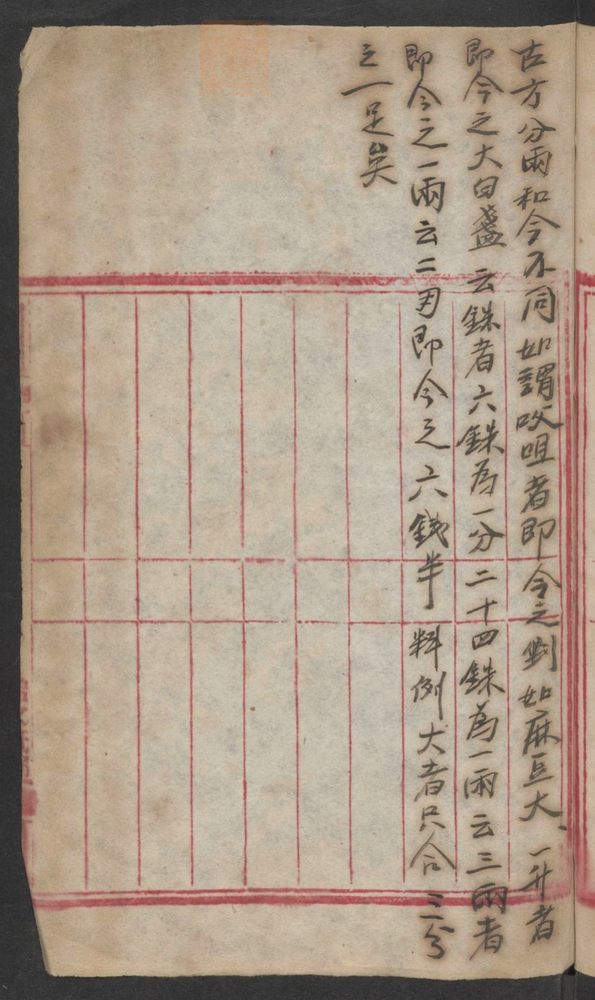 古方分兩和今不同如謂㕮咀者即今之剉如麻豆大、一升者
即今之大白盞云銖者六銖為一分二十四銖為一兩云三兩者
即今之一兩云二刄即今之六錢半 料例大者只合三分
之一足矣